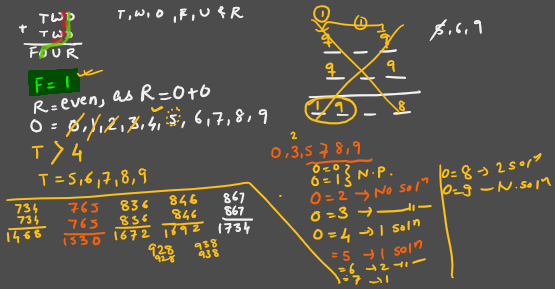 TWO
+ TWO
FOUR
T, W, O, F, U & R
F = 1
R = even, as R = O + O
O = 0, 1, 2, 3, 4, 5, 6, 7, 8, 9
T > 4
T = 5, 6, 7, 8, 9
734
734
1468
765
765
1530
836
836
1672
846
846
1692
867
867
1734
928
928
938
938
1 1
9 _ 9
9 _ 9
1 9 _ 8
5, 6, 9
2
0, 3, 5 7 8, 9
O = 0
O = 1 } N.P.
O = 2 → No solⁿ
O = 3 → —"—
O = 4 → 1 solⁿ
= 5 → 1 solⁿ
= 6 → 2 —"—
= 7 → 1
O = 8 → 2 solⁿ
O = 9 — N. solⁿ